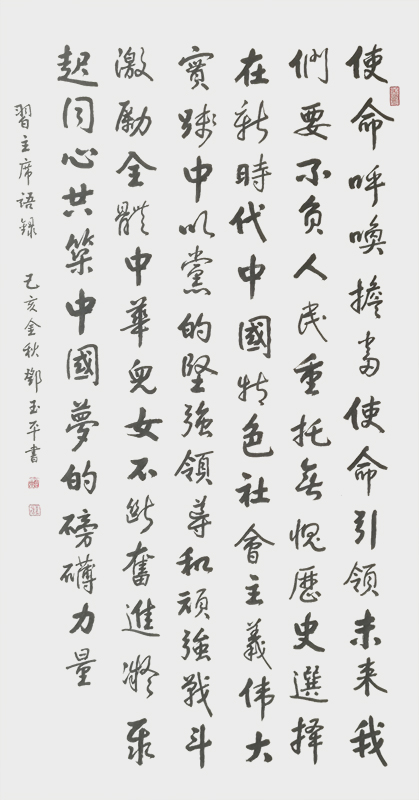 使命呼喚擔當使命引領未来我
們要不負人民重托無愧歷史選擇
在新時代中國特色社會主義伟大
實踐中以黨的堅強領導和頑強戰斗
激勵全體中華兒女不斷奮進凝聚
起同心共築中國夢的磅礴力量
習主席語録
己亥金秋鄧玉平書